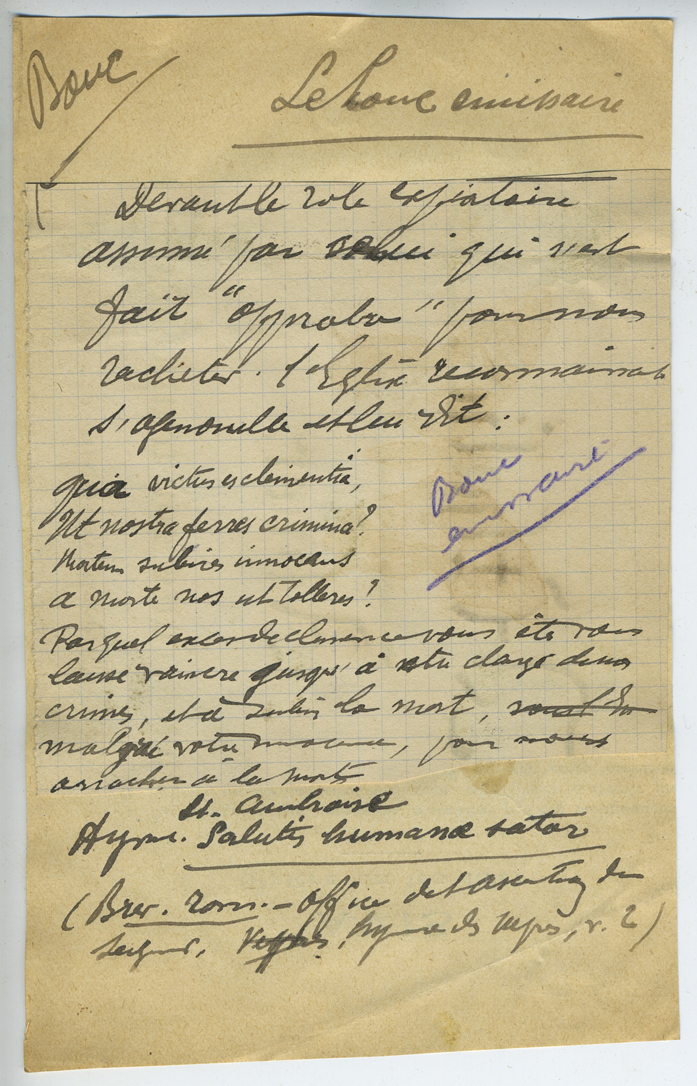 Bouc
Le bouc émissaire
Devant le rôle expiatoire
assumé par celui qui s'est
fait "opprobre" pour nous
racheter. l'Eglise reconnaissante
s'agenouille et leur dit :
quia victus es clementia,
Ut nostra ferres crimina?
Mortem subires innocens
a morte nos ut tolleres?
Bouc
émissaire
Par quel excès de clémence vous êtes vous
laissé vaincre jusqu'à être chargé de nos
crimes, et à subir la mort,
malgré votre innocence, pour nous
arracher à la mort
St. Ambroise
Hymne. Salutis humanæ sator
(Brev. rom. - Office de l'Ascention du
Seigneur, Vêpres, hymne des vêpres, v. 2)